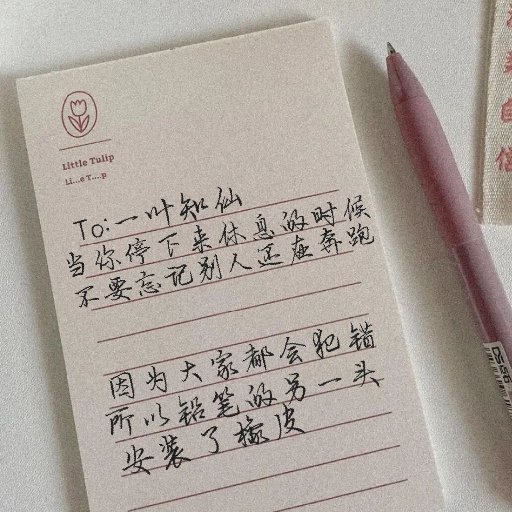 Little Tulip
Li...e T....p
To:一叶知仙
当你停下来休息的时候
不要忘记别人还在奔跑
因为大家都会犯错
所以铅笔的另一头
安装了橡皮